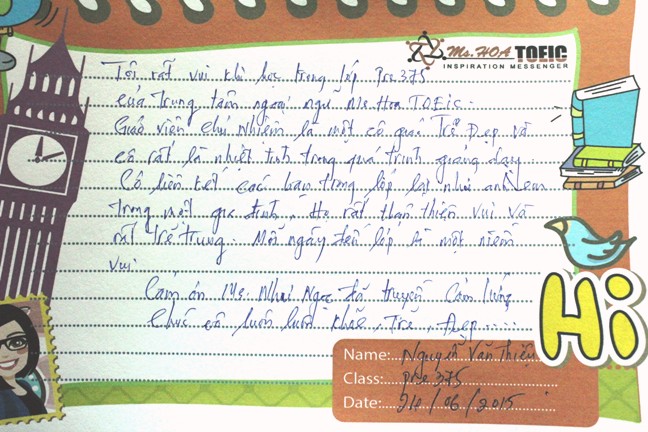 Ms.HOA TOEIC
INSPIRATION MESSENGER
Tôi rất vui khi học trong lớp Pre 375
của Trung tâm ngoại ngữ Ms Hoa TOEIC.
Giáo viên chủ nhiệm là một cô giáo Trẻ Đẹp và
cô rất là nhiệt tình trong quá trình giảng dạy.
Cô liên kết các bạn trong lớp lại như anh em
trong một gia đình, Họ rất thân thiện vui và
rất trẻ trung. Mỗi ngày đến lớp là một niềm
vui
Cảm ơn Ms. Nhại Ngọc đã truyền Cảm hứng
Chúc cô luôn luôn khỏe, Trẻ, Đẹp.....
Hi
Name: Nguyễn Văn Thiện
Class: Pre 375
Date: 24/06/2015